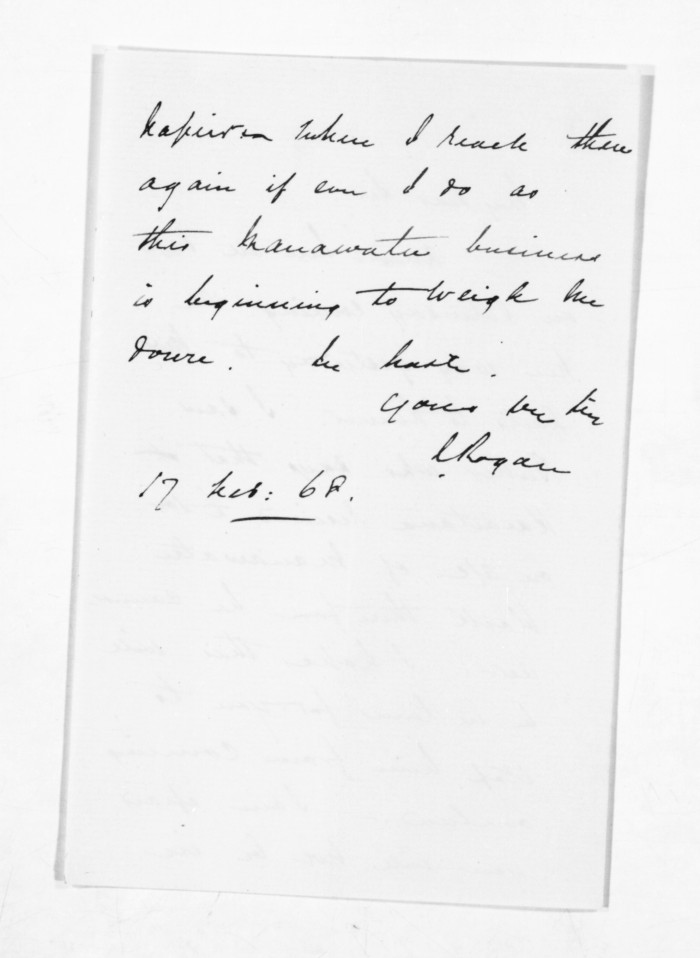 Kaipara when I reach there
again if ever I do as
this Manawatu business
is beginning to weigh me
down. In haste.
Yours very truly
J Rogan
17 Feb: 68.